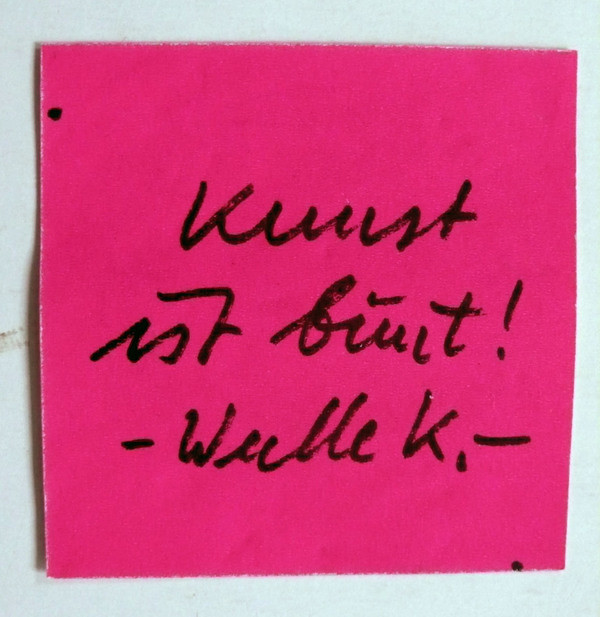 Kunst
ist bunt!
- Wulle K. -